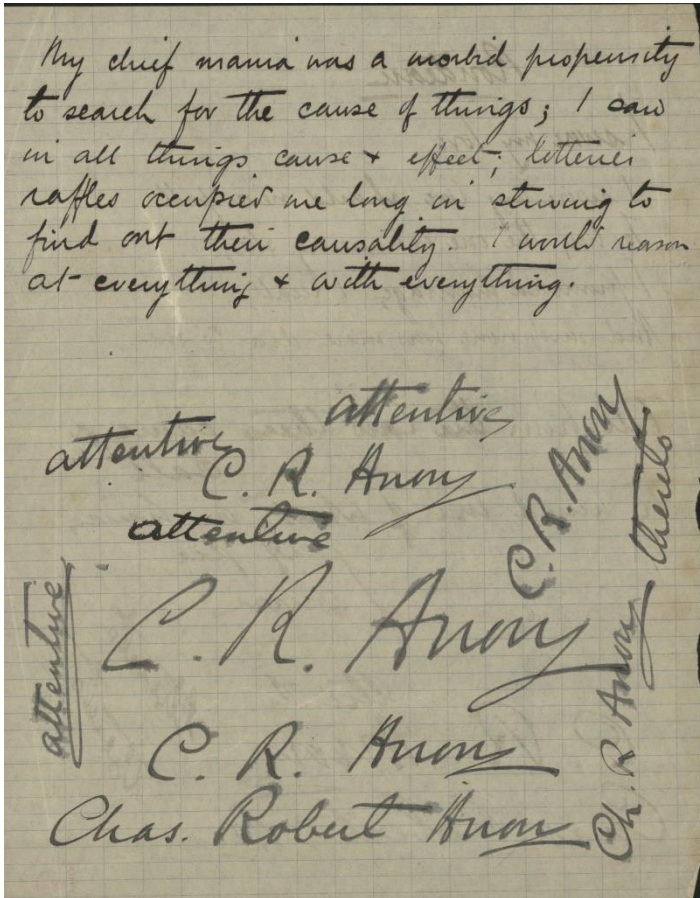 My chief mania was a morbid propensity
to search for the cause of things; I saw
in all things cause & effect; lotteries
raffles occupied me long in striving to
find out their causality. I would reason
at everything & with everything.
attentive
attentive
C. R. Anon
attentive
C. R. Anon
thereto
attentive
C. R. Anon
C. R. Anon
Ch. R Anon
Chas. Robert Anon